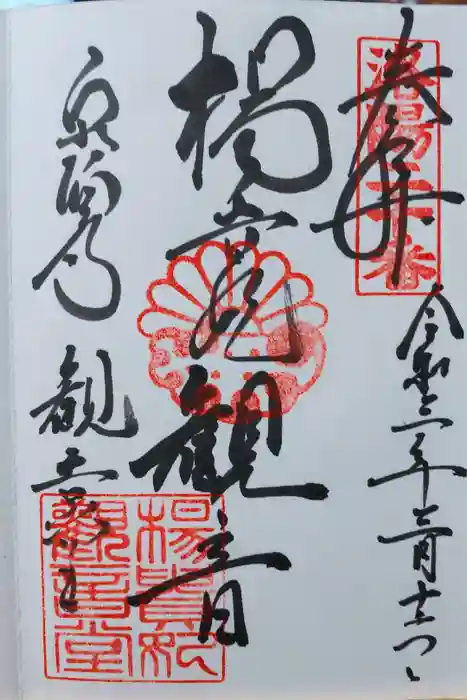 奉拝
洛陽二十番
令和三年二月十一日
楊貴妃観音
泉涌寺
観音堂
楊貴妃
観音堂